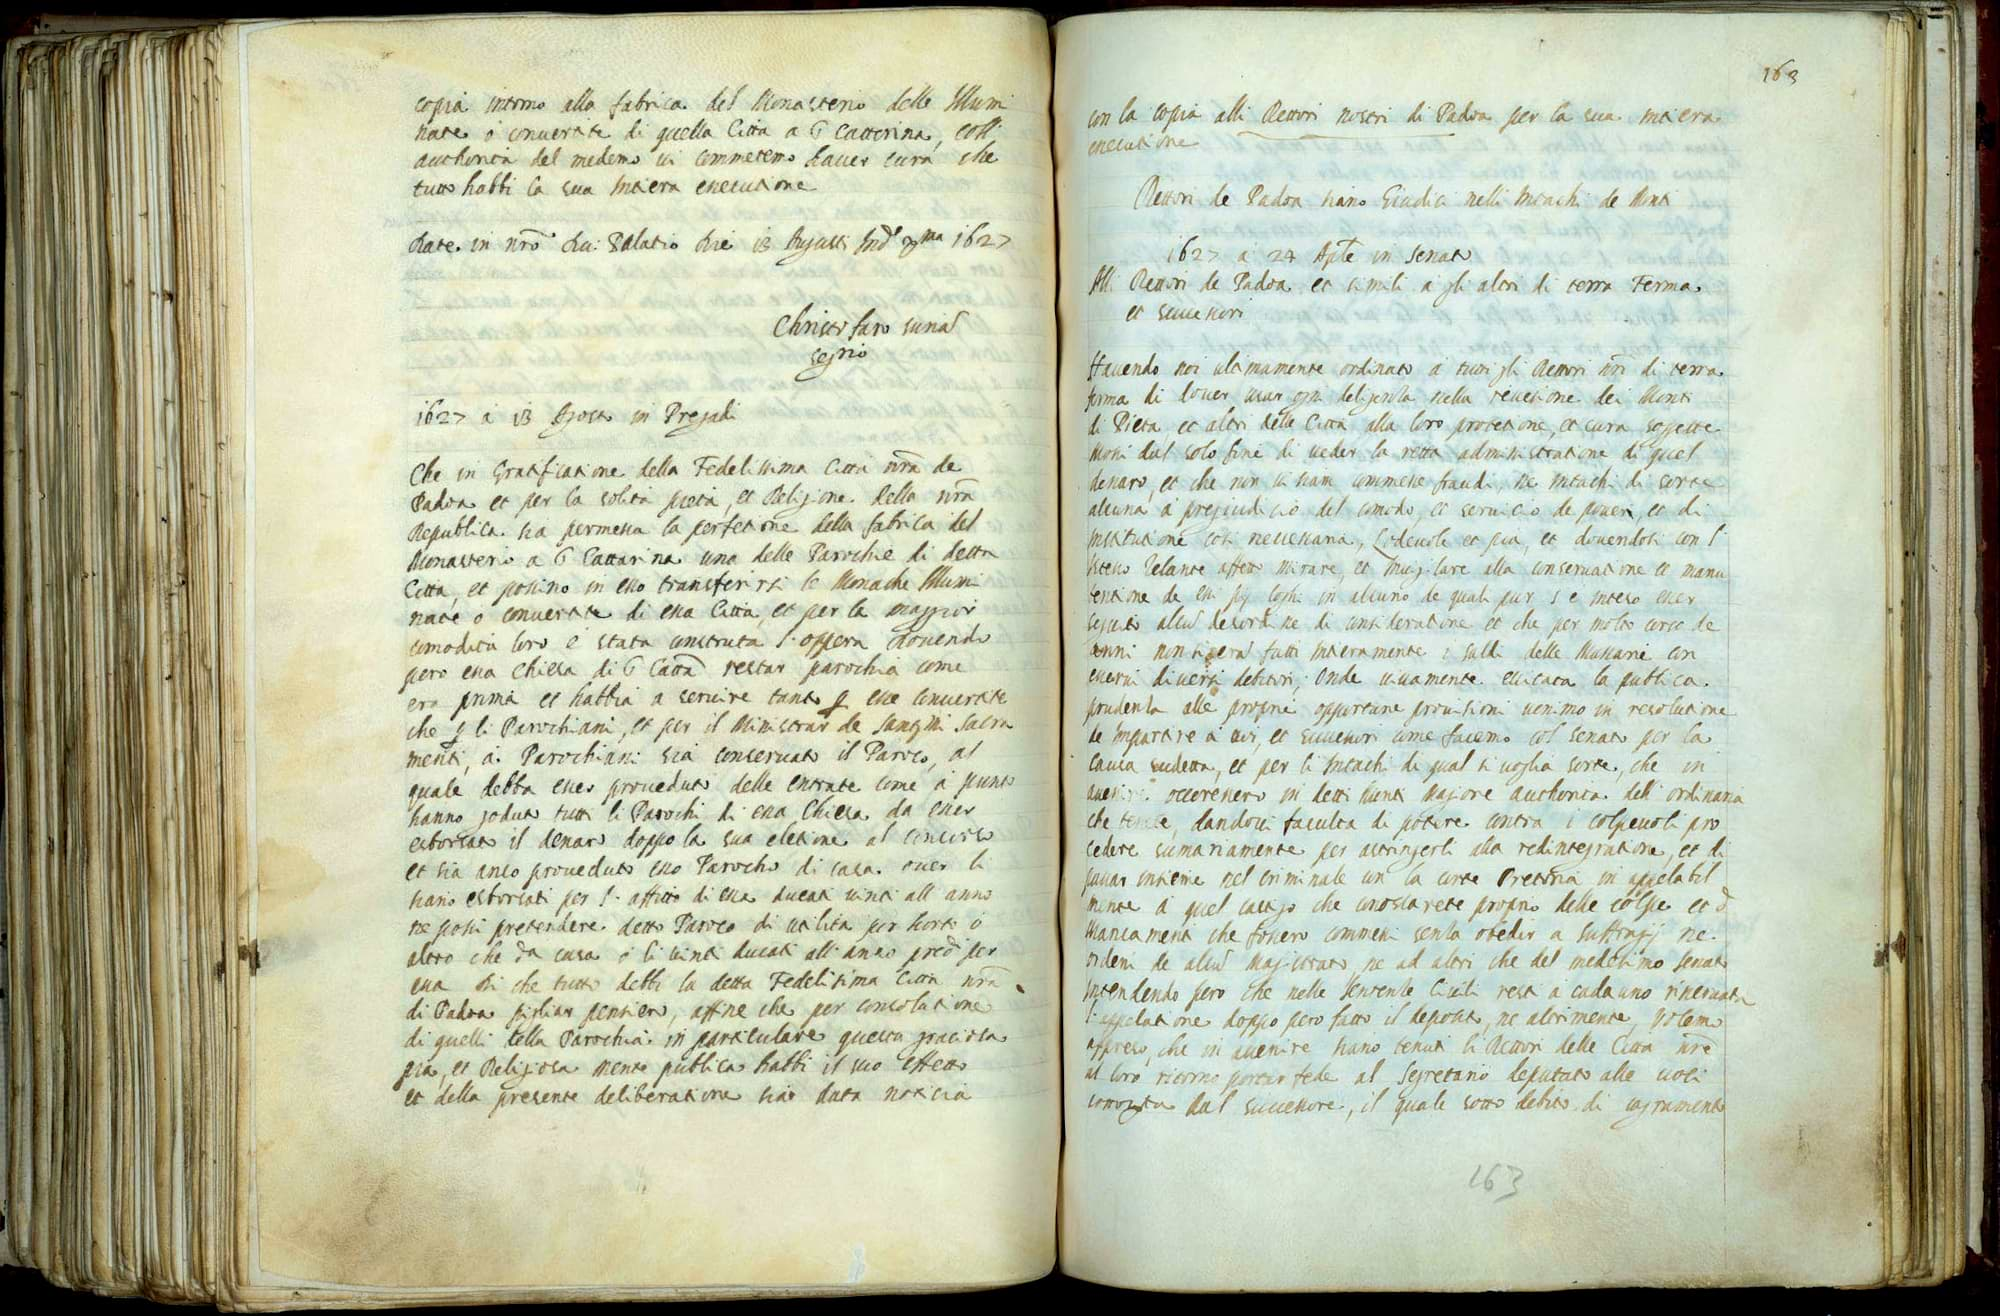 copia intorno alla fabrica del Monasterio delle Illumi
nate ò convertite di quella Città a S Catterina, coll
authorità del medemo vi commetemo haver cura che
tutto habbi la sua intiera executione
Date in nrõ Duc Palatio die 13 Augusti Indᵉ Xᵐᵃ 1627
Christofaro Surian
segrio
1627 à 13 Agosto in Pregadi
Che in gratificatione della Fedelissima Città nrã de
Padoa et per la solita pietà, et Religione della nrã
Republica sia permessa la perfetione della fabrica del
Monasterio a S Cattarina una delle Parochie di detta
Città, et possino in esso transferirsi le Monache Illumi
nate o convertite di essa Città, et per la maggior
comodità loro è stata construta l'opera dovendo
però essa Chiesa di S Cattã restar parochia come
era prima et habbia a servire tanto ꝑ esse convertite
che ꝑ li Parochiani, et per il Ministrar de Santissimi Sacra
menti, à Parochiani sia conservato il Paroco, al
quale debba esser proveduto delle entrate come à punto
hanno goduto tutti li Parochi di essa Chiesa da esser
esborsato il denaro doppo la sua eletione al concorso
et sia anco proveduto esso Parocho di casa over li
siano esborsati per l'affitto di essa ducati vinti all anno
ne possi pretendere detto Paroco di utilità per horto ò
altro che da casa ò li vinti ducati all anno pred. per
essa di che tutto debbi la detta Fedelissima Città nrã
di Padoa pigliar pensiero, affine che per consolatione
di quelli della Parochia in particulare questa gratiosa
pia, et Religiosa mente publica habbi il suo effetto
et della presente deliberatione sia data noticia
163
con la copia alli Rettori nostri di Padoa per la sua intiera
executione
Rettori de Padoa siano Giudici nelli Intachi de Monti
1627 a 24 in Senato
Alli Rettori de Padoa et simili a gli altri di terra Ferma
et successori
Havendo noi ultimamente ordinato à tutti gli Rettori nrĩ di terra
ferma di dover usar ogni deligenza nella revisione dei Monti
di Pietà et altri delle Città alla loro protetione, et cura soggette
mossi dal solo fine di veder la retta administratione di quel
denaro, et che non si siano commesse fraudi, ne intachi di sorte
alcuna à pregiudicio del comodo, et servicio de poveri, et di
institutione così necessaria, lodevole et pia, et dovendosi con l'
istesso zelante affetto mirare, et invigilare alla conservatione et manu
tentione de essi pij lochi in alcuno de quali pur s'è inteso esser
seguito alcũ desordine di consideratione et che per molto corso de
anni non si era fatti intieramente i saldi delle Massarie con
esservi diversi debitori; Onde vivamente eccitata la publica
prudenza alle proprie opportune provisioni venimo in resolutione
de impartire à voi, et successori come facemo col Senato per la
causa sudetta, et per li intachi di qual si voglia sorte, che in
avenire occoressero in detti Monti Magiore authorità dell'ordinaria
che tenete, dandovi facultà di potere contra i colpevoli pro
cedere sumariamente per astringerli alla redintegratione, et di
più insieme nel criminale con la corte Pretoria in appelabil
mente à quel castigo che conoscerete proprio delle colpe et
mancamenti che fossero commessi senza obedir a suffragij ne
ordeni de alcũ Magistrato, ne ad altri che del medesimo Senato
Intendendo però che nelle sentenze Civili resti à cadauno riservata
l'appelatione doppo però fatto il deposito, ne altrimente, Volemo
appreso, che in avenire siano tenuti li Rettori delle Città nrẽ
al loro ritorno portar fede al Segretario deputato alle voci
sotto dal successore, il quale sotto debito di sagramento
163